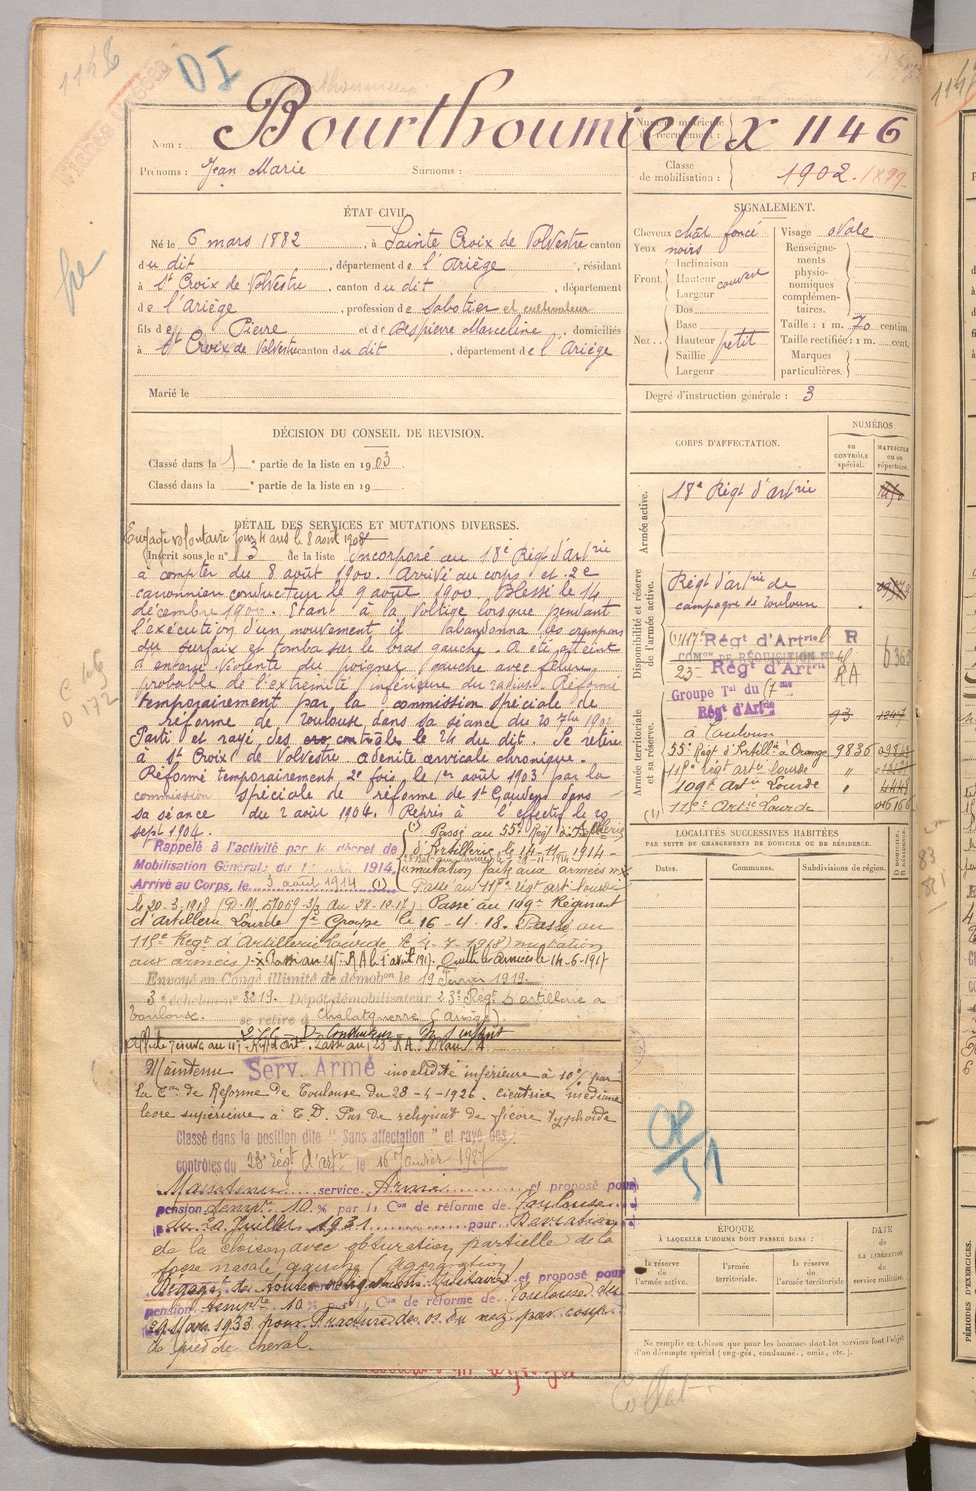 1146
DI
Nom : Bourthoumieux 1146
Numéro matricule du recrutement :
Prénoms : Jean Marie Surnoms :
Classe de mobilisation : 1902. 1899.
ÉTAT CIVIL.
Né le 6 mars 1882, à Sainte Croix de Volvestre canton
du dit, département de l'Ariège, résidant
à St Croix de Volvestre, canton du dit département
de l'Ariège, profession de Sabotier et cultivateur
fils de Pierre et de Despierre Marceline, domiciliés
à St Croix de Volvestre canton du dit, département de l'Ariège
Marié le
SIGNALEMENT.
Cheveux chât foncé
Yeux noirs
Front. Inclinaison
Hauteur couvert
Largeur
Nez.. Dos
Base
Hauteur petit
Saillie
Largeur
Visage ovale
Renseignements physionomiques complémentaires.
Taille : 1 m. 70 centim.
Taille rectifiée : 1 m. cent.
Marques particulières.
Degré d'instruction générale : 3
DÉCISION DU CONSEIL DE REVISION.
Classé dans la 1 e partie de la liste en 1903.
Classé dans la e partie de la liste en 19
DÉTAIL DES SERVICES ET MUTATIONS DIVERSES.
Engagé volontaire pour 4 ans le 8 août 190
Inscrit sous le n° 3 de la liste incorporé au 18e Régt d'artrie
à compter du 8 août 1900. Arrivé au corps et 2e
canonnier conducteur le 9 août 1900. Blessé le 14
décembre 1901. Étant à la Voltige lorsque pendant
l'exécution d'un mouvement il abandonna les crampons
du surfaix et tomba sur le bras gauche. A été atteint
d'entorse violente du poignet gauche avec fêlure
probable de l'extrémité inférieure du radius. Réformé
temporairement par la commission spéciale de
réforme de Toulouse dans sa séance du 20 7bre 1902
Parti et rayé des contrôles le 24 du dit. Se retire
à St Croix de Volvestre adenite cervicale chronique.
Réformé temporairement 2e fois le 1er août 1903 par la
commission spéciale de réforme de St Gaudens dans
sa séance du 2 août 1904. Repris à l'effectif le 20
sept 1904.
Rappelé à l'activité par le décret de
Mobilisation Générale du 1 août 1914,
Arrivé au Corps, le 3 août 1914 (1)
(1) Passé au 55e Régt d'Artillerie
d'Artillerie le 14-11-1914
mutation faite aux armées
Passé au 117e régt art lourde
le 20-3-1918 (D.M. 57069-3/3 du 28-12-17). Passé au 109e Régiment
d'Artillerie Lourde 7e Groupe le 16-4-18. Passé au
115e Régt d'Artillerie Lourde le 4-7-1918) mutation
aux armées)
Envoyé en Congé illimité de démobon le 19 Février 1919.
3e échelon n° 3219. Dépôt démobilisateur 23e Régt d'artillerie à
Toulouse. se retire à Chalatguerre (Ariège).
Maintenu Serv. Armé invalidité inférieure à 10% par
la Con de Réforme de Toulouse du 28-4-1926. cicatrice médiane
lèvre supérieure à T.D. Pas de reliquat de fièvre typhoïde
Classé dans la position dite "Sans affectation" et rayé des
contrôles du 23e régt d'artie le 16 Janvier 1927
Maintenu service Armé et proposé pour
pension tempre 10 % par la Con de réforme de Toulouse
du 30 Juillet 1931 pour Déviation
de la cloison avec obturation partielle de la
fosse nasale gauche (Aggravation)
Dégagé de toutes obligations militaires et proposé pour
pension tempre 10 % par la Con de réforme de Toulouse du
29 Mars 1933 pour Fracture des os du nez par coup
de pied de cheval.
CORPS D'AFFECTATION.
NUMÉROS
au CONTRÔLE spécial.
MATRICULE ou au répertoire.
Armée active.
18e Régt d'artrie
Disponibilité et réserve de l'armée active.
Régt d'artrie de
campagne de Toulouse
(1) 117e Régt d'Artrie R
COMon DE RÉQUISITION
23e Régt d'Artrie RA
Groupe Tal du 17me
Régt d'Artrie
Armée territoriale et sa réserve.
93 1247
à Toulouse
55e Régt d'Artillie à Orange 9836
117e régt artie lourde "
109e Artie Lourde "
(1) 115e Artie Lourde
LOCALITÉS SUCCESSIVES HABITÉES
PAR SUITE DE CHANGEMENTS DE DOMICILE OU DE RÉSIDENCE.
Dates.
Communes.
Subdivisions de région.
D DOMICILE.
R RÉSIDENCE.
ÉPOQUE
À LAQUELLE L'HOMME DOIT PASSER DANS :
la réserve de l'armée active.
l'armée territoriale.
la réserve de l'armée territoriale
DATE de LA LIBÉRATION du service militaire.
Ne remplir ce tableau que pour les hommes dont les services font l'objet
d'un décompte spécial (engagés, condamnés, omis, etc.).
PÉRIODES D'EXERCICES.